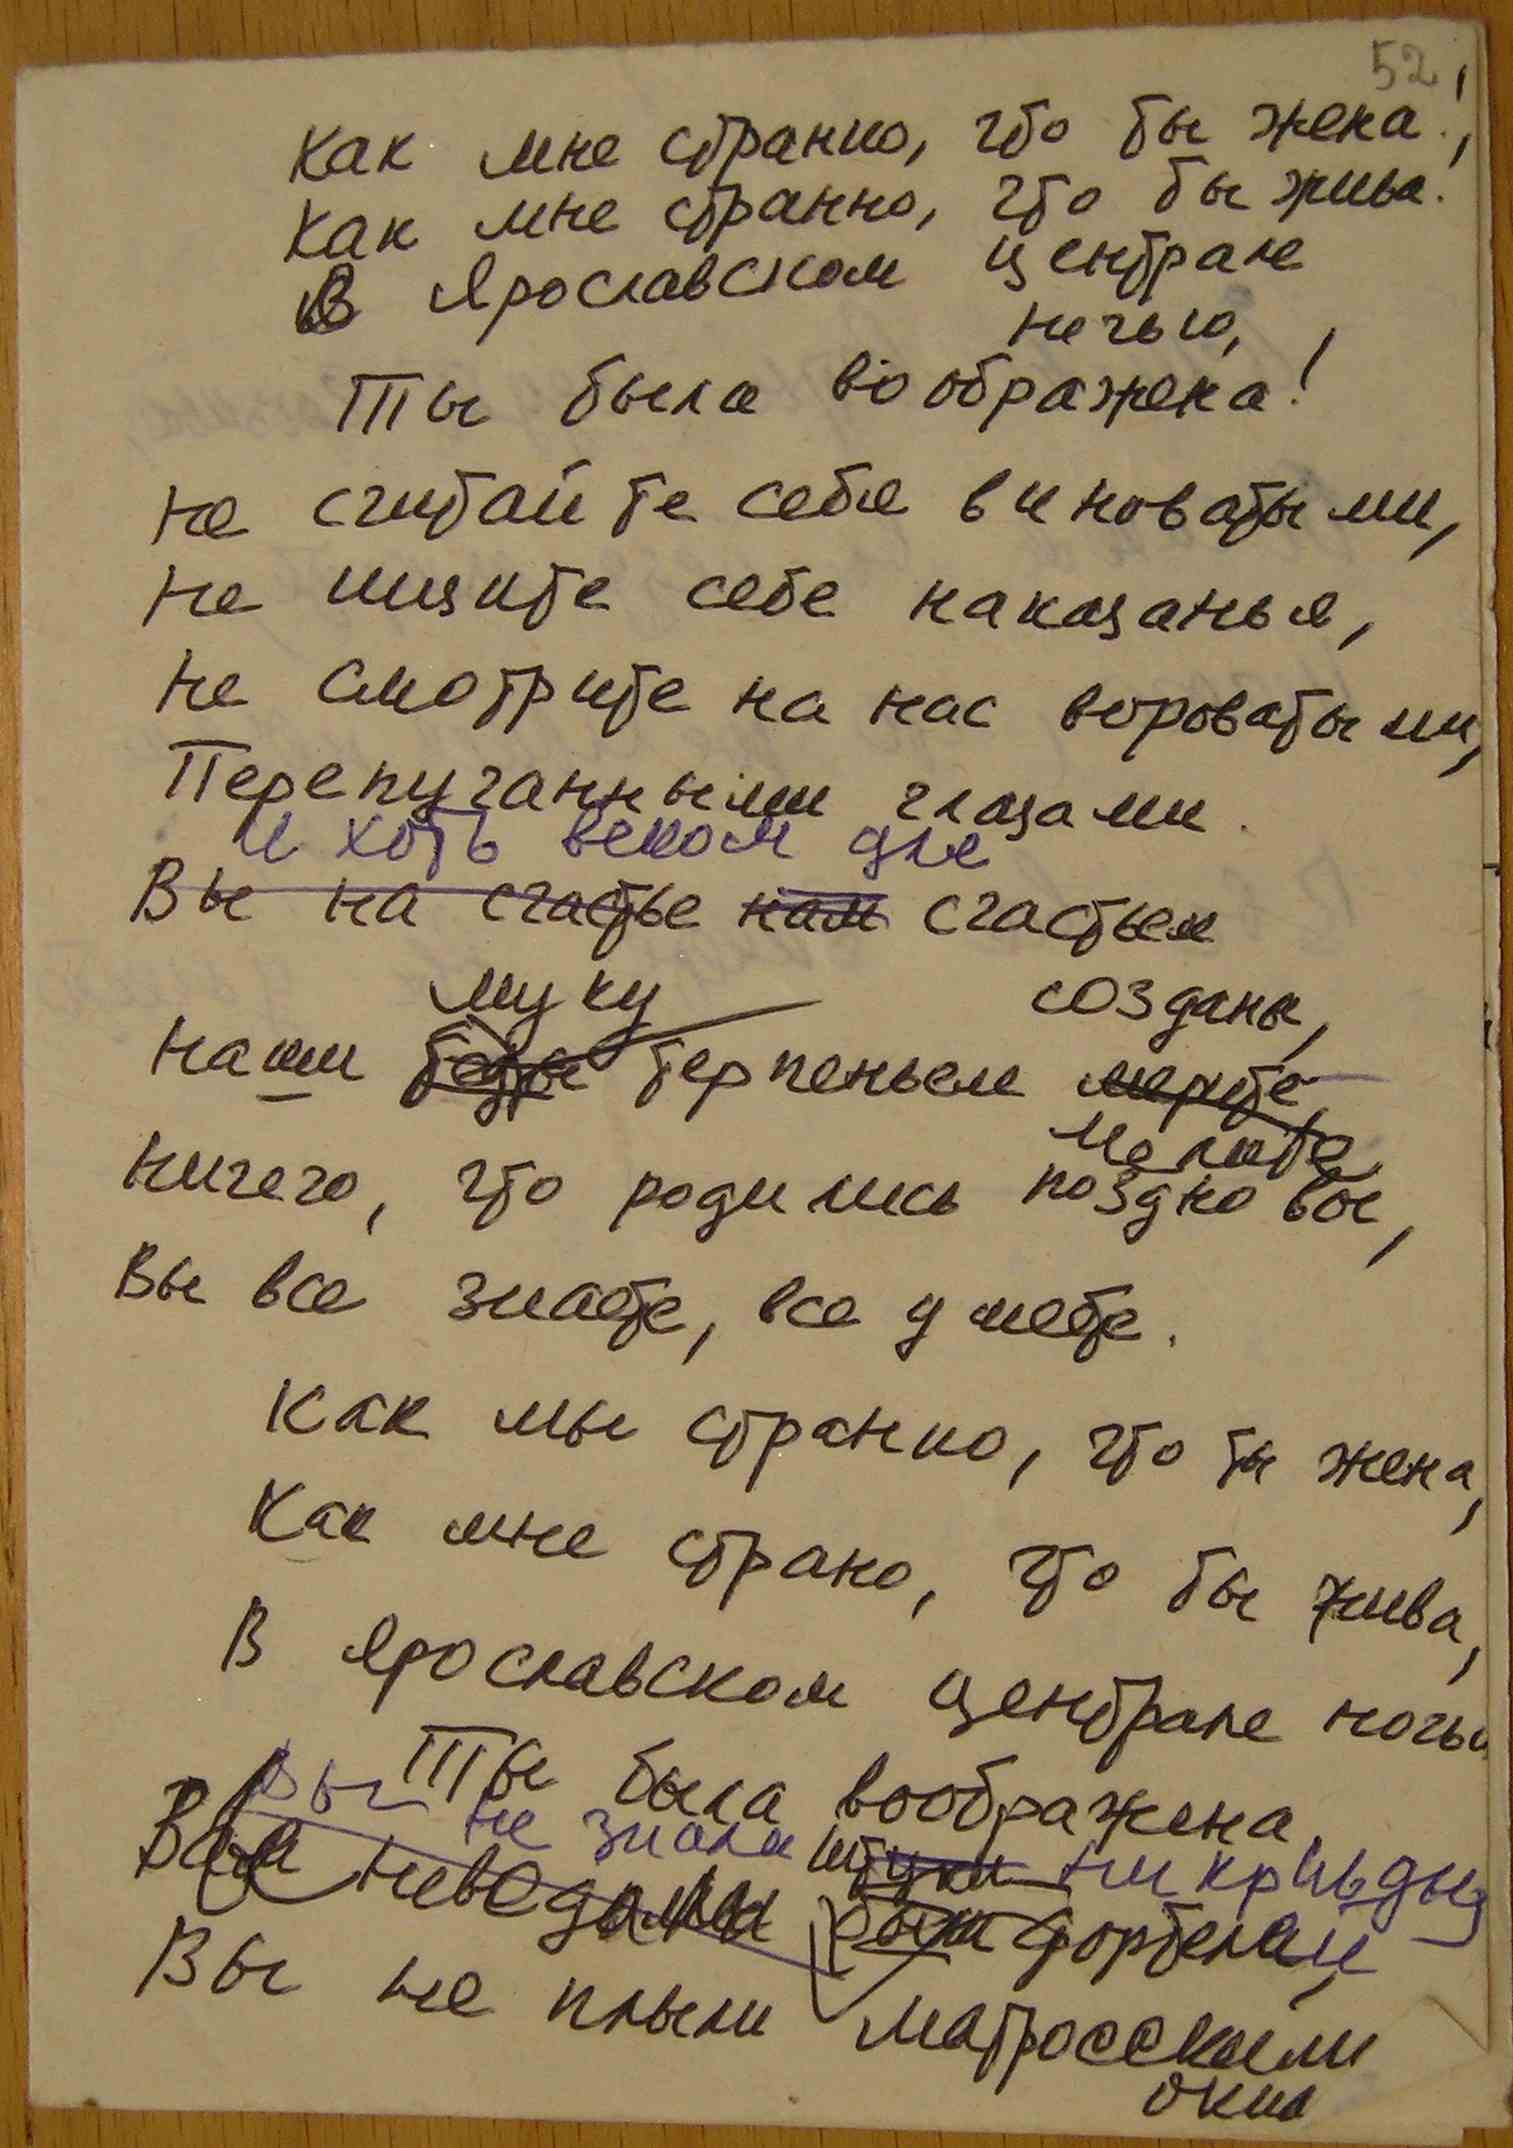 52
Как мне странно, что ты жена!,
Как мне странно, что ты жива!
В Ярославском централе
ночью,
Ты была воображена!
не считайте себя виноватыми,
не ищите себе наказанья,
не смотрите на нас вороватыми,
Перепуганными глазами.
и хоть веком для
Вы на счастье нам счастьем
муку созданы,
наши беды терпеньем мерьте,
мелите
ничего, что родились поздно вы,
Вы все знаете, все умеете.
Как мы странно, что ты жена,
Как мне страно, что ты жива,
В Ярославском централе ночью
Ты была воображена
Вы не знали штуки ни крыьды
Вам неведомы были фортелей,
Вы не плыли матросскими
окна